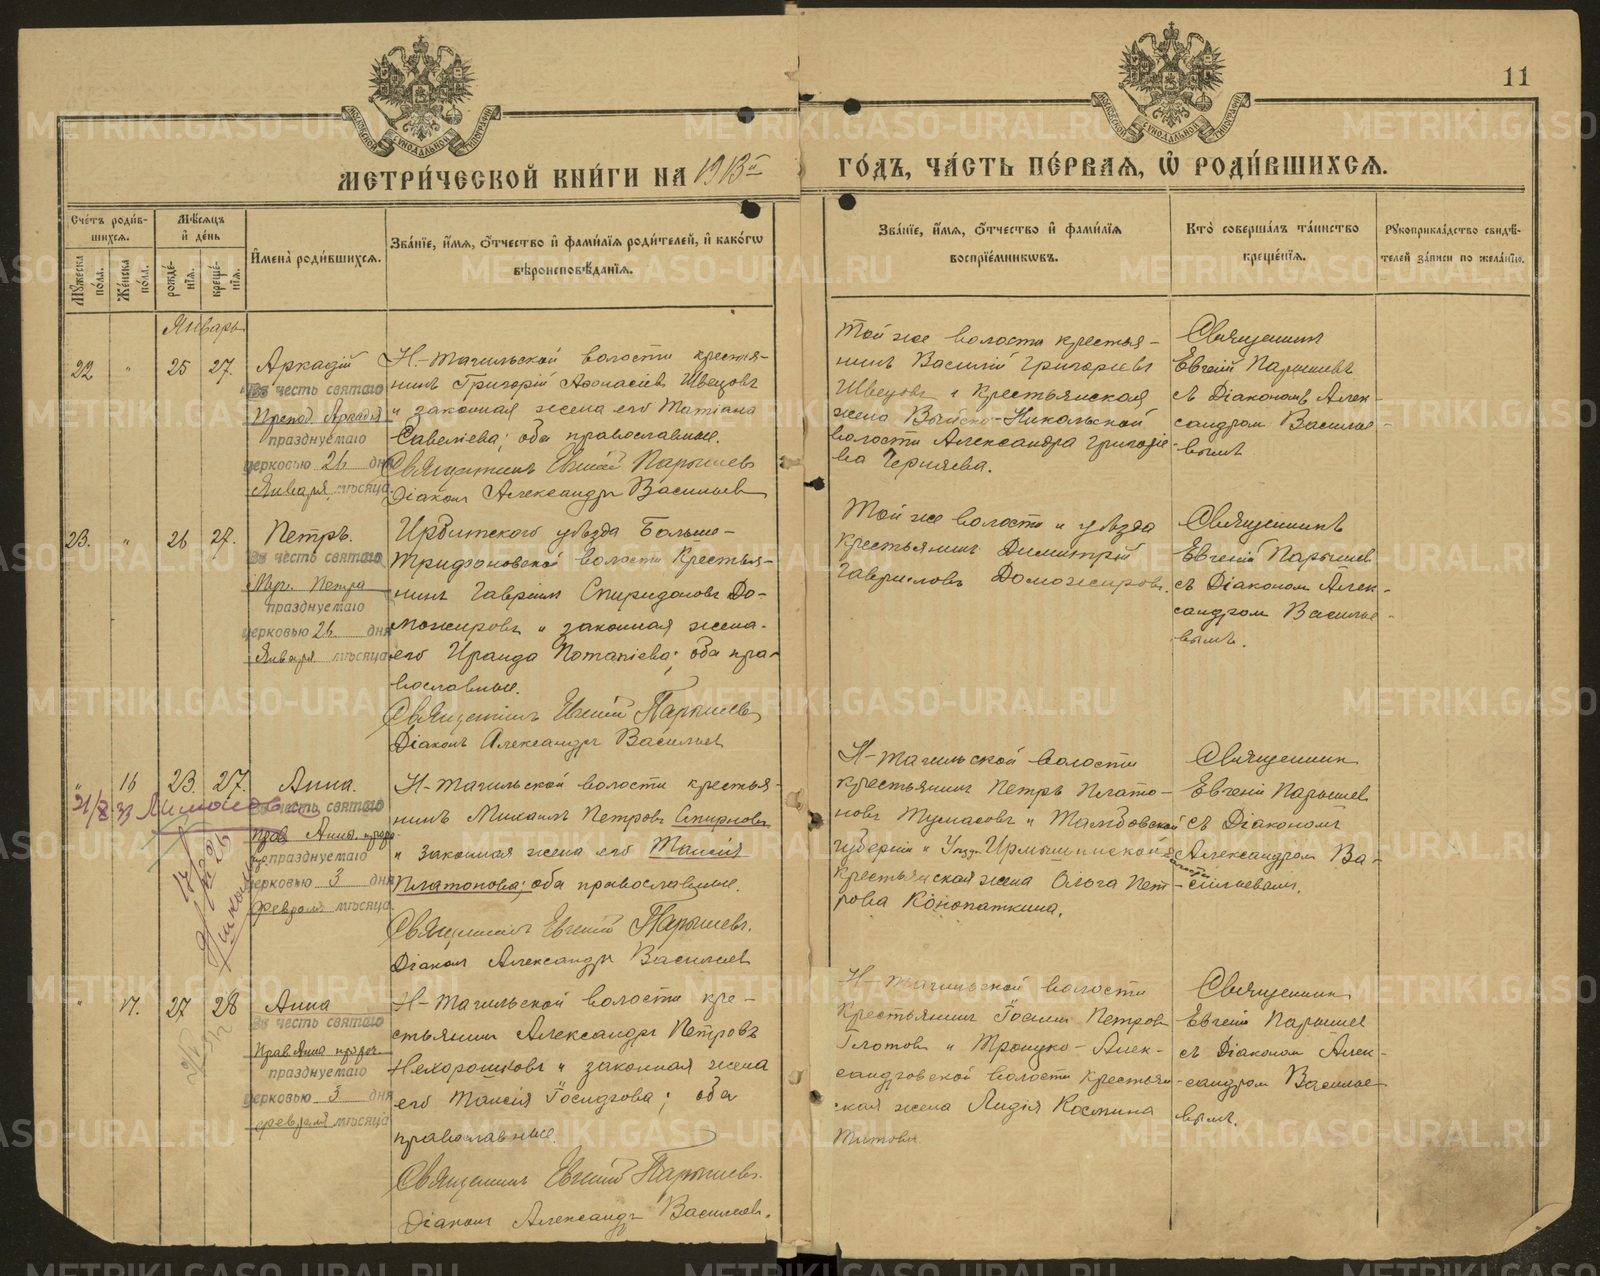 11
МЕТРИ́ЧЕСКОЙ КНИ́ГИ НА 1913й ГО́ДЪ, ЧА́СТЬ ПЕ́РВАЯ, Ѡ҆ РОДИ́ВШИХСѦ.
Сче́тъ роди́вшихсѧ.
Мѣ́сѧцъ и҆ де́нь
Мꙋ́жеска по́ла.
Же́нска по́ла.
рожде́нїѧ.
креще́нїѧ.
И҆мена̀ роди́вшихсѧ.
Зва́нїе, и҆́мѧ, ѻ҆́тчество и҆ фами́лїѧ роди́телей, и҆ како́гѡ
вѣроисповѣ́данїѧ.
Зва́нїе, и҆́мѧ, ѻ҆́тчество и҆ фами́лїѧ
воспрїе́мникѡвъ.
Кто̀ соверша́лъ та́инство
креще́нїѧ.
Рꙋкоприкла́дство свидѣ́-
телей за́писи по жела́нїю.
Январь
22 " 25 27.
Аркадій
Въ честь святаго
Препод. Аркадія
празднуемаго
церковью 26 дня
Января мѣсяца
Н-Тагильской волости крестья-
нинъ Григорій Аѳонасіевъ Швецовъ
и законная жена его Татіана
Савеліева; оба православные.
Священникъ Евгеній Парышевъ
Діаконъ Александръ Васильевъ
Той же волости крестья-
нинъ Василій Григорьевъ
Швецовъ и Крестьянская
жена Выйско-Никольской
волости Александра Григоріе-
ва Черняева.
Священникъ
Евгеній Парышевъ
съ Діакономъ Алек-
сандромъ Василье-
вымъ
23. " 26 27.
Петръ.
Въ честь святаго
Муч. Петра
празднуемаго
церковью 26 дня
Января мѣсяца
Ирбитского уѣзда Больше-
Трифоновской волости Крестья-
нинъ Гавріилъ Спиридоновъ До-
можировъ и законная жена
его Ираида Потапіева; оба пра-
вославные.
Священникъ Евгеній Парышевъ
Діаконъ Александръ Васильевъ
Той же волости и уѣзда
Крестьянинъ Димитрій
Гавриловъ Доможировъ.
Священникъ
Евгеній Парышев
съ Діаконом Алек-
сандром Василье-
вымъ.
" 16 23. 27.
Анна.
Въ честь святаго
Прав. Анна прор.
празднуемаго
церковью 3 дня
Февраля мѣсяца
Н-Тагильской волости крестья-
нинъ Михаилъ Петровъ Смирновъ
и законная жена его Таисія
Платонова; оба православные.
Священникъ Евгеній Парышевъ.
Діаконъ Александръ Васильев
Н-Тагильской волости
крестьянинъ Петръ Плато-
новъ Тумасовъ и Тамбовской
губерніи и
Крестьянская жена Ольга Пет-
рова Конопаткина.
Священник
Евгеній Парышев
съ Діакономъ
Александром Ва-
сильевымъ.
" 17. 27 28
Анна
Въ честь святаго
Прав Анна пророч.
празднуемаго
церковью 3 дня
февраля мѣсяца
Н-Тагильской волости кре-
стьянин Александръ Петровъ
Нехорошковъ и законная жена
его Таисія; оба
православные.
Священникъ Евгеній Парышевъ.
Діаконъ Александръ Васильевъ.
Н-Тагильской волости
Крестьянинъ Петров
и Троицко-Алек-
сандровской волости Крестьян-
ская жена Лидія Космина
Титова.
Священник
Евгеній Парышев
съ Діаконом Алек-
сандром Василье-
вымъ.
METRIKI.GASO-URAL.RU